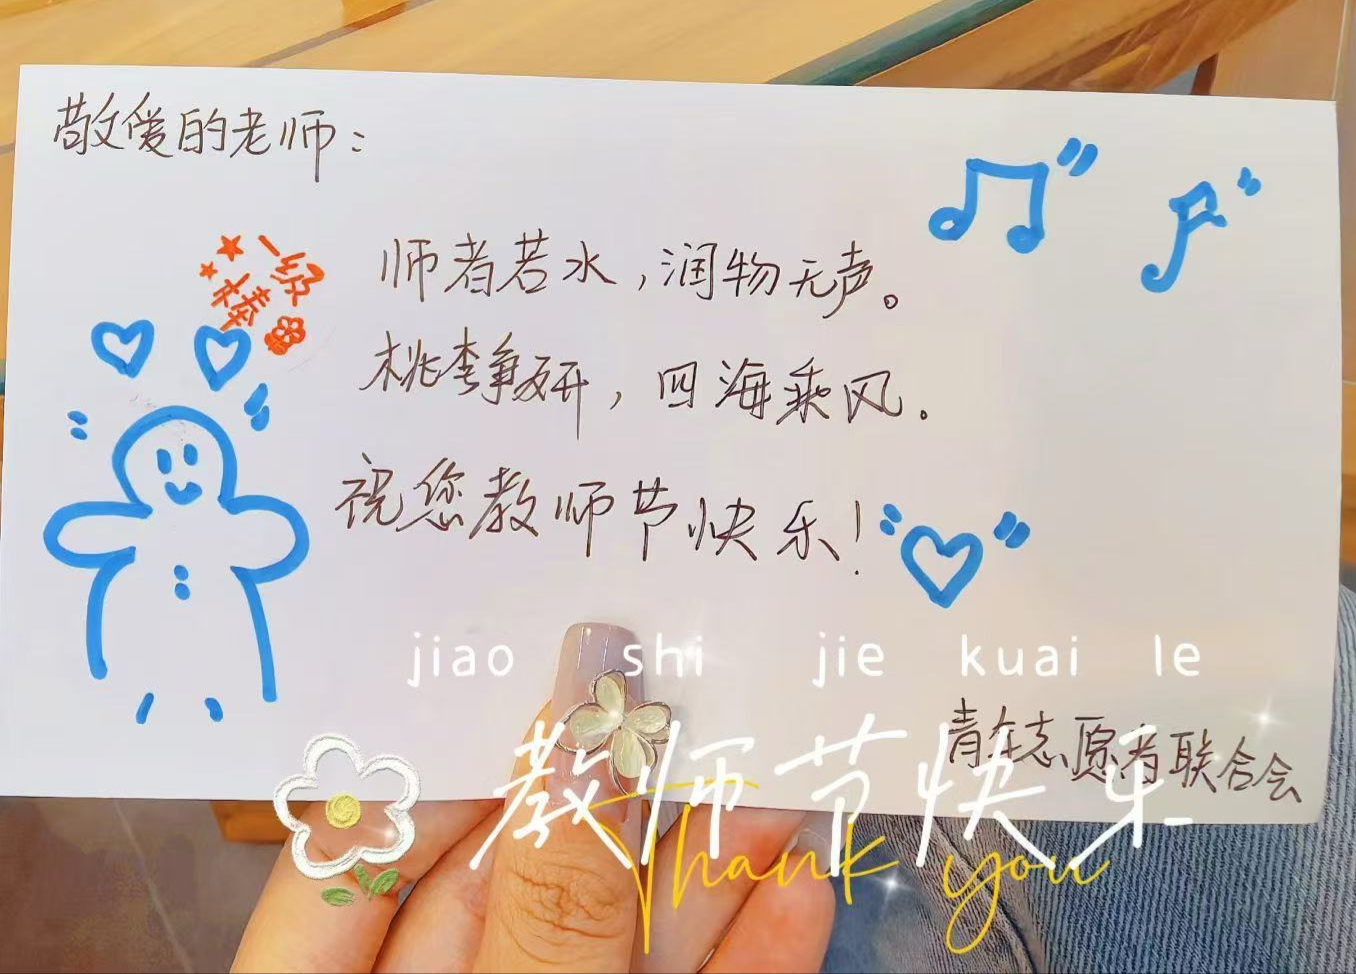 敬爱的老师：
一级
棒
师者若水，润物无声。
桃李争妍，四海乘风。
祝您教师节快乐！
jiao shi jie kuai le
青年志愿者联合会
教师节快乐
Thank you